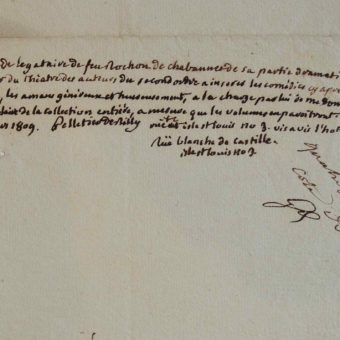 de legataire de feu Rochon de chabannes de sa partie dramati
du théatre des auteurs du second ordre a inserer les comédies cy apres
les amans généreux et heureusement, a la charge par lui de me donn
de la collection entiére, a mesure que les volumes en paroitront
1809. Pelletier de Rilly isle st louis no 3. vis avis l'hot
Rüe blanche de castille.
isle st louis no 3